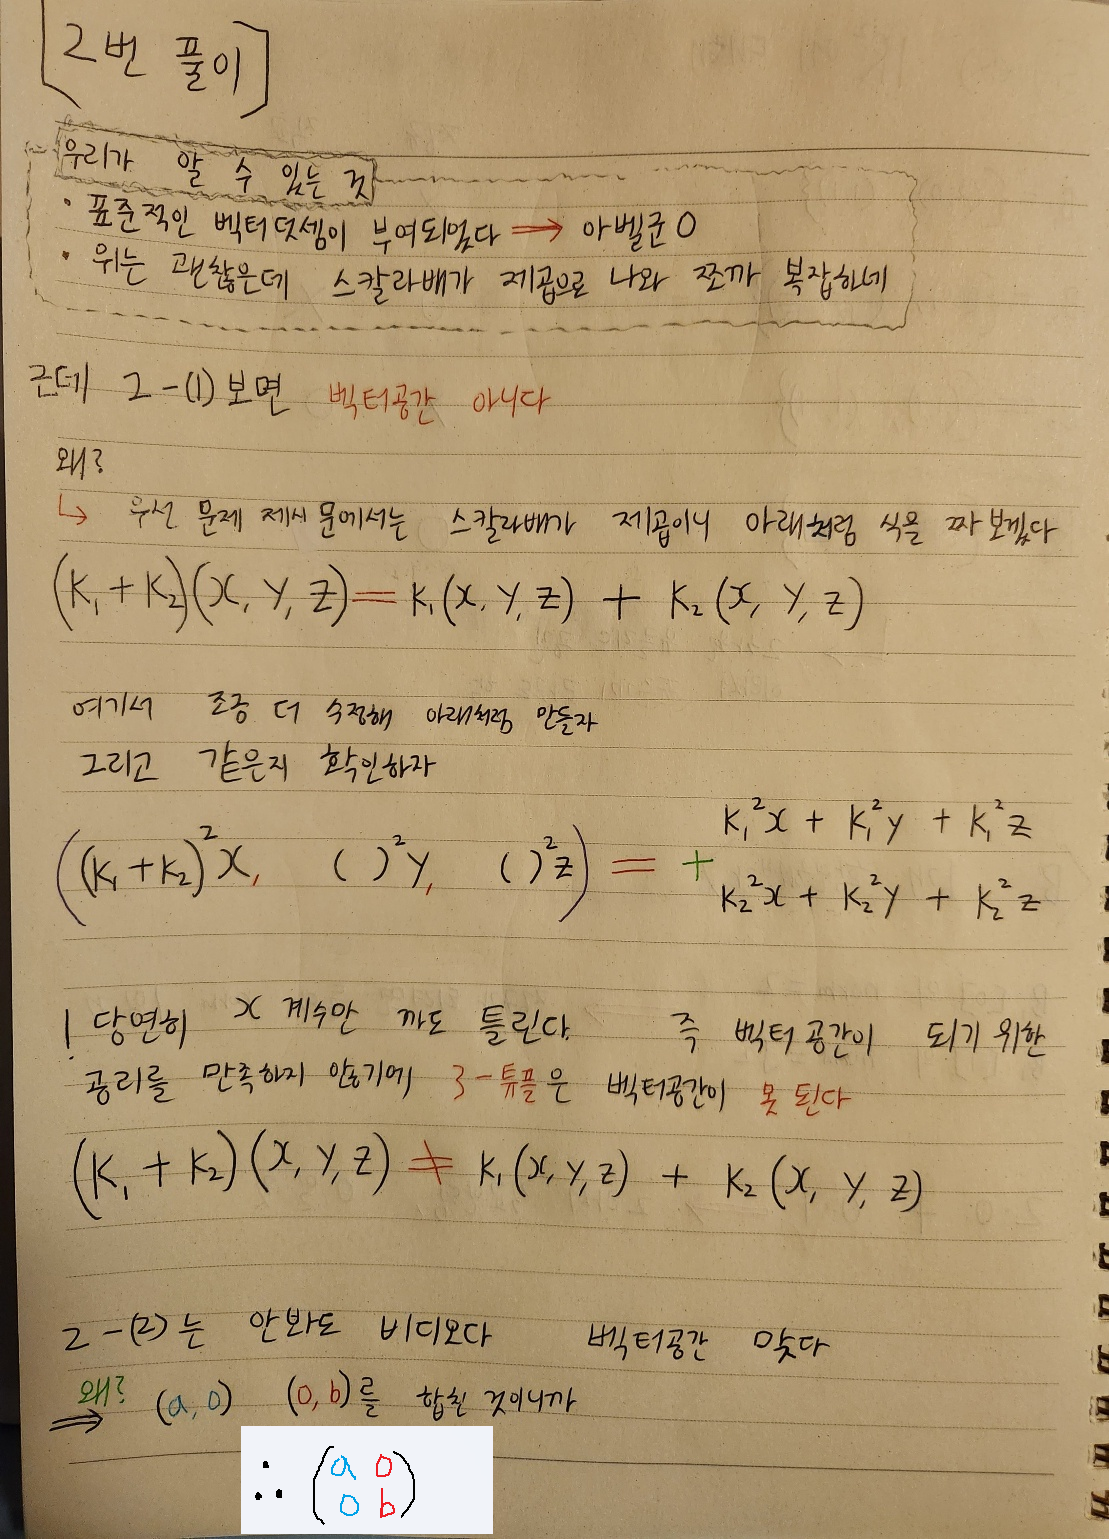 [2번 풀이]
우리가 알 수 있는 것
· 표준적인 벡터덧셈이 부여되었다 ⇒ 아벨군 O
· 위는 괜찮은데 스칼라배가 제곱으로 나와 쪼까 복잡하네
근데 2-(1)보면 벡터공간 아니다
왜?
↳ 우선 문제 제시문에서는 스칼라배가 제곱이니 아래처럼 식을 짜보겠다
(K₁ + K₂)(x, y, z) = K₁(x, y, z) + K₂(x, y, z)
여기서 조금 더 수정해 아래처럼 만들자
그리고 같은지 확인하자
((K₁ + K₂)²x, ( )²y, ( )²z) = + K₁²x + K₁²y + K₁²z
K₂²x + K₂²y + K₂²z
! 당연히 x 계수만 까도 틀린다. 즉 벡터공간이 되기 위한
공리를 만족하지 않기에 3-튜플은 벡터공간이 못 된다
(K₁ + K₂)(x, y, z) ≠ K₁(x, y, z) + K₂(x, y, z)
2-(2)는 안봐도 비디오다 벡터공간 맞다
왜?
⇒ (a, 0) (0, b)를 합친 것이니까
∴ (a 0
0 b)